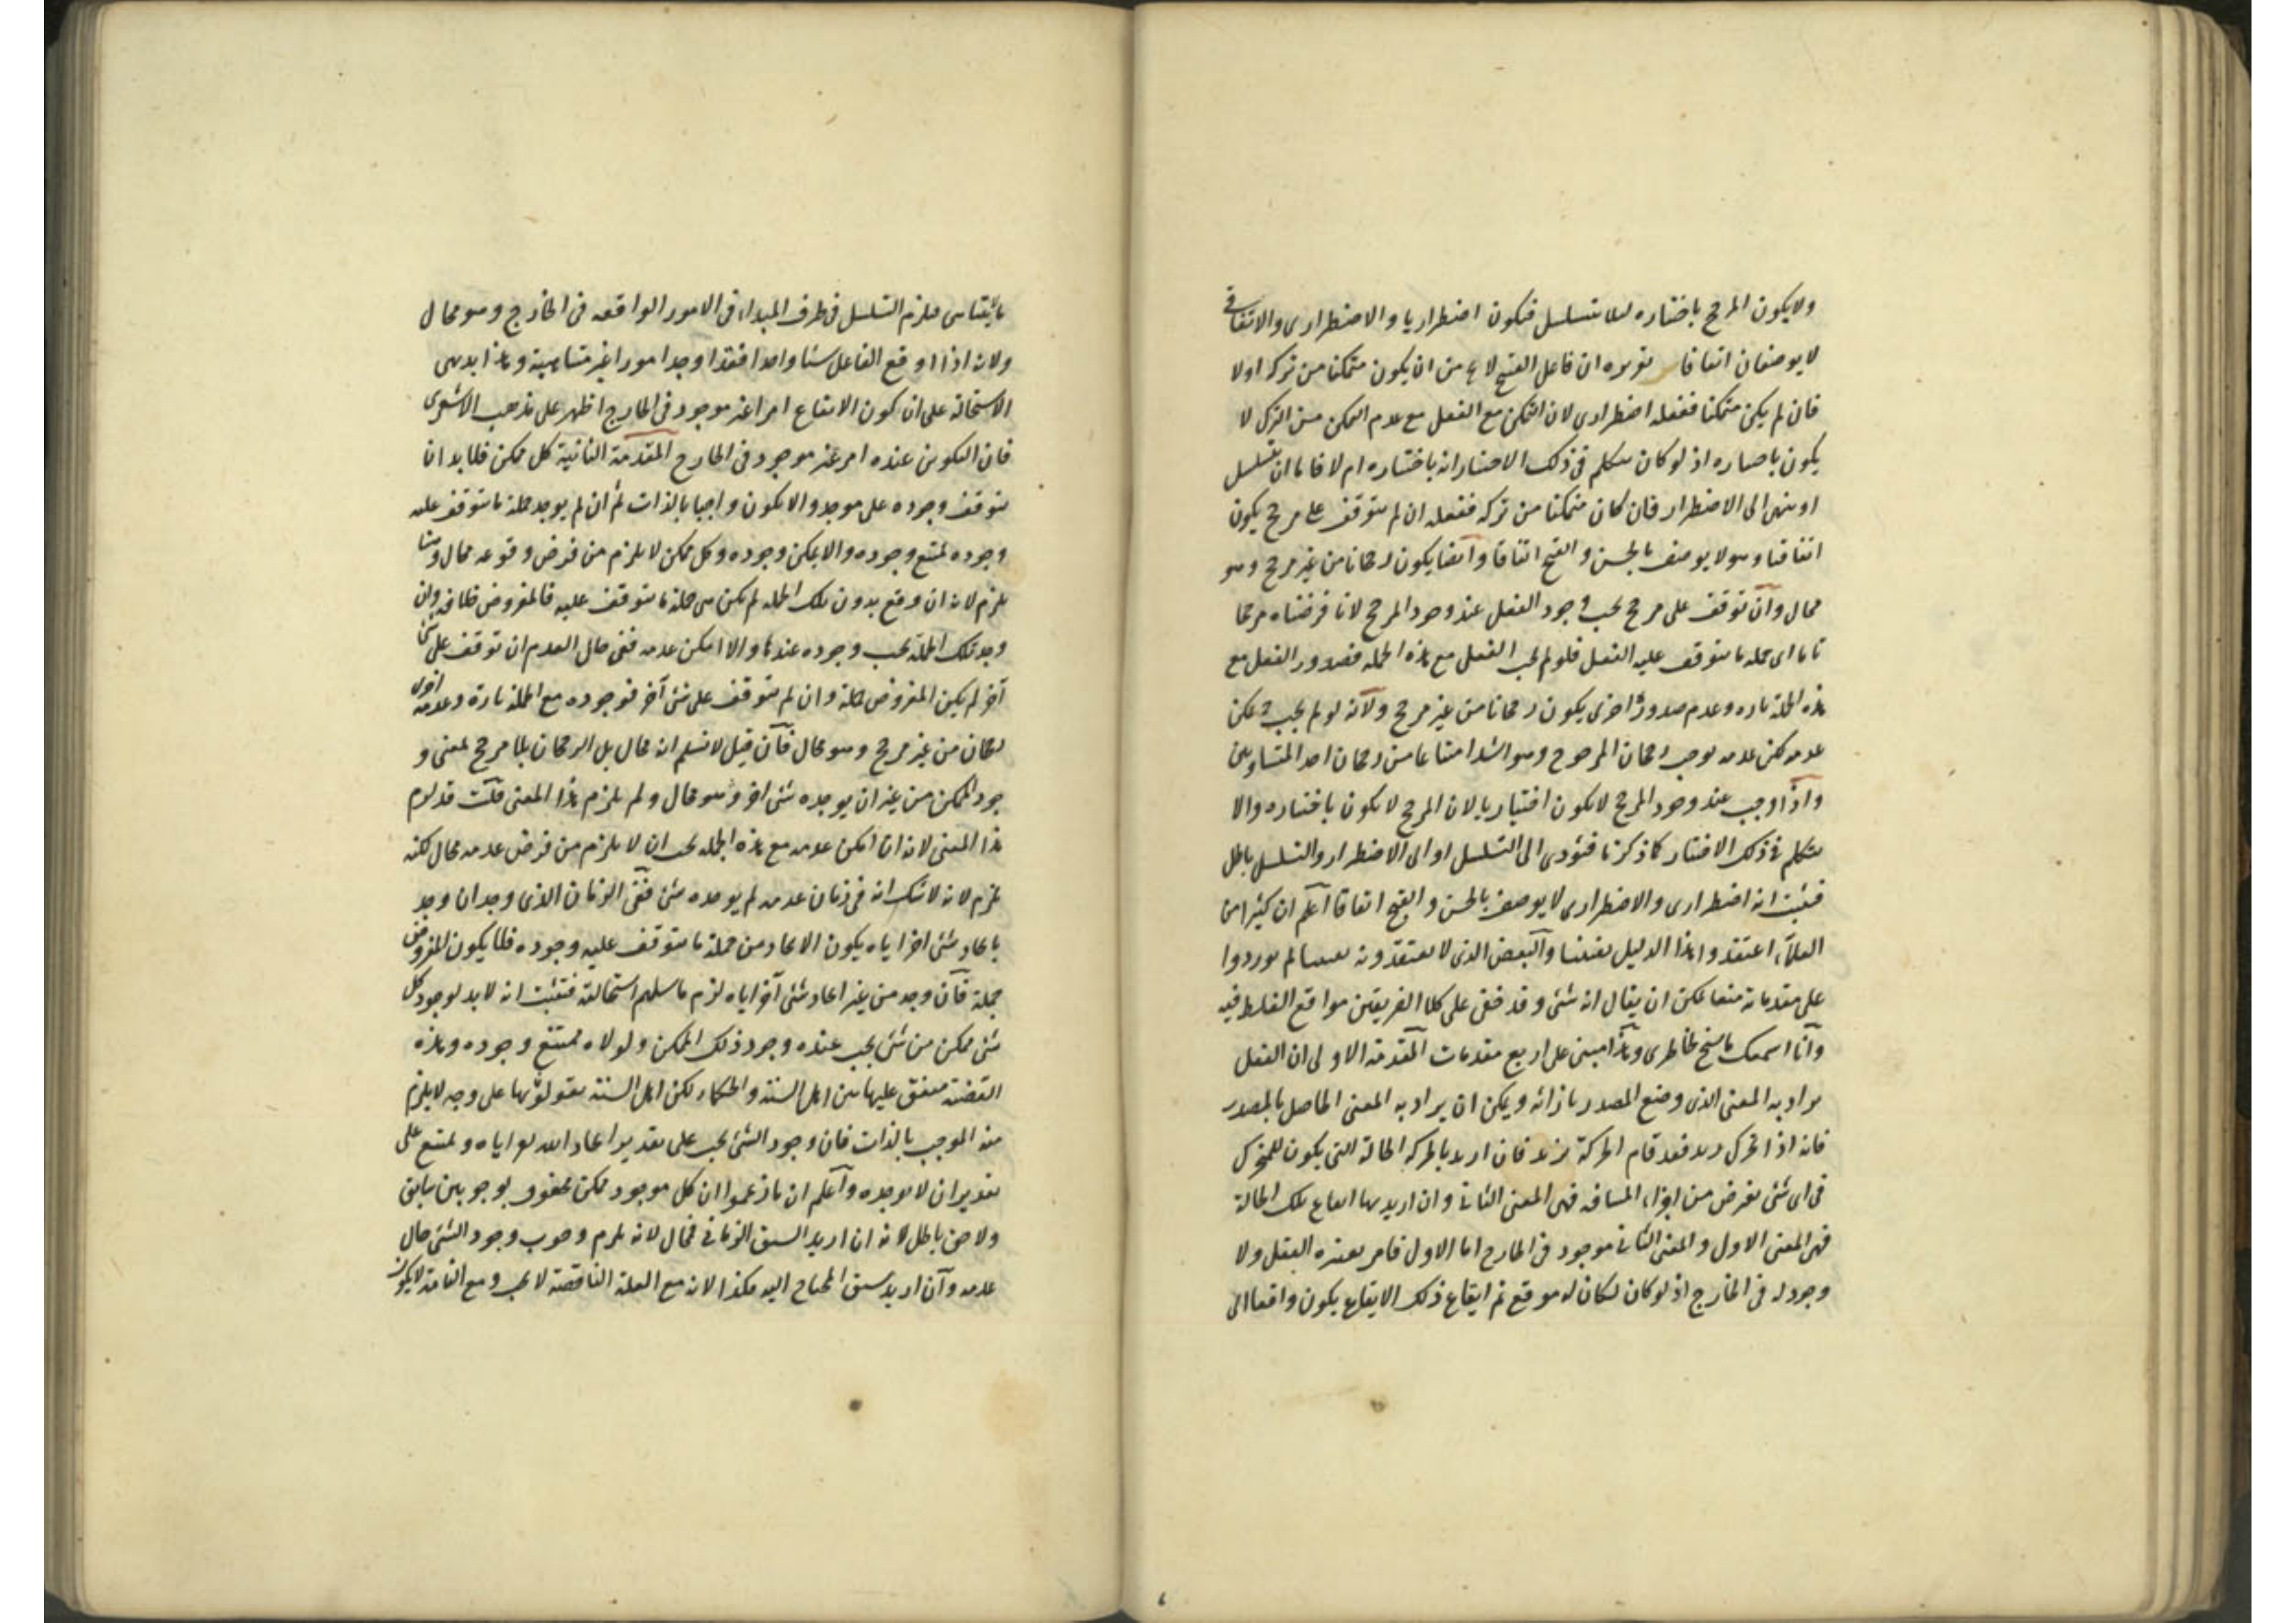 ولا يكون المرجح باختياره لئلا يتسلسل فيكون اضطراريا والاضطرارى والاتفاقى
لا يوصفان اتفاقا تقريره ان فاعل القبيح لا يخ من ان يكون متمكنا من تركه اولا
فان لم يكن متمكنا ففعله اضطرارى لان التمكن مع الفعل مع عدم التمكن من الترك لا
يكون باختياره اذ لو كان نتكلم فى ذلك الاختيار انه باختياره ام لا فاما ان يتسلسل
او ينتهى الى الاضطرار فان كان متمكنا من تركه ففعله ان لم يتوقف على مرجح يكون
اتفاقيا وهو لا يوصف بالحسن والقبح اتفاقا وايضا يكون رجحانا من غير مرجح وهو
محال وان توقف على مرجح يجب وجود الفعل عند وجود المرجح لانا فرضناه مرجحا
تاما اى جملة ما يتوقف عليه الفعل فلو لم يجب الفعل مع هذه الجملة فصدور الفعل مع
هذه الجملة تارة وعدم صدوره اخرى يكون رجحانا من غير مرجح ولانه لو لم يجب ح يمكن
عدمه لكن عدمه يوجب رجحان المرجوح وهو اشد امتناعا من رجحان احد المتساويين
واذا وجب عند وجود المرجح لا يكون اختياريا لان المرجح لا يكون باختياره والا
نتكلم فى ذلك الاختيار كما ذكرنا فيؤدى الى التسلسل او الى الاضطرار والتسلسل باطل
فيثبت انه اضطرارى والاضطرارى لا يوصف بالحسن والقبح اتفاقا اعلم ان كثيرا من
العلماء اعتقدوا هذا الدليل يقينيا والبعض الذى لا يعتقدونه يقينيا لم يوردوا
على مقدماته منعا يمكن ان يقال انه شئ وقد خفى على كلا الفريقين مواقع الغلط فيه
وانا اسمعك ما سنح لخاطرى وهذا مبنى على اربع مقدمات المقدمة الاولى ان الفعل
يراد به المعنى الذى وضع المصدر بازائه ويمكن ان يراد به المعنى الحاصل بالمصدر
فانه اذا تحرك زيد فقد قام الحركة بزيد فان اريد بالحركة الحالة التى يكون للمتحرك
فى اى شئ يفرض من اجزاء المسافه فهى المعنى الثانى وان اريد بها ايقاع تلك الحالة
فهى المعنى الاول والمعنى الثانى موجود فى الخارج اما الاول فامر يعتبره العقل ولا
وجود له فى الخارج اذ لو كان لكان له موقع ثم ايقاع ذلك الايقاع يكون واقعا الى
ما يتناهى فيلزم التسلسل فى طرف المبداء فى الامور الواقعه فى الخارج وهو محال
ولانه اذا اوقع الفاعل شيئا واحدا فقد اوجد امورا غير متناهية وهذا بديهى
الاستحالة على ان كون الايقاع امرا غير موجود فى الخارج اظهر على مذهب الاشعرى
فان التكوين عنده امر غير موجود فى الخارج المقدمة الثانية كل ممكن فلا بد ان
يتوقف وجوده على موجد والا يكون واجبا بالذات ثم ان لم يوجد جملة ما يتوقف عليه
وجوده يمتنع وجوده والا يمكن وجوده وكل ممكن لا يلزم من فرض وقوعه محال وهنا
يلزم لانه ان وقع بدون تلك الجملة لم يكن هى جملة ما يتوقف عليه فالمفروض خلافه وان
وجد تلك الجملة يجب وجوده عندها والا امكن عدمه ففى حال العدم ان توقف على شئ
آخر لم يكن المفروض جملة وان لم يتوقف على شئ آخر فوجوده مع الجملة تارة وعدمه اخرى
رجحان من غير مرجح وهو محال فان قيل لا نسلم انه محال بل الرجحان بلا مرجح بمعنى و
جود الممكن من غير ان يوجده شئ اخر وهو محال ولم يلزم هذا المعنى قلت قد لزم
هذا المعنى لانه ان امكن عدمه مع هذه الجملة يجب ان لا يلزم من فرض عدمه محال لكنه
يلزم لانه لا شك انه فى زمان عدمه لم يوجده شئ ففى الزمان الذى وجد ان وجد
بايجاد شئ اخر اياه يكون الايجاد من جملة ما يتوقف عليه وجوده فلا يكون المفروض
جملة فان وجد من غير ايجاد شئ آخر اياه لزم ما سلم استحالته فيثبت انه لا بد لوجود كل
شئ ممكن من شئ يجب عنده وجود ذلك الممكن ولولاه يمتنع وجوده وهذه
القضية متفق عليها بين اهل السنة والحكماء لكن اهل السنة يقولونها على وجه لا يلزم
منه الموجب بالذات فان وجود الشئ يجب على تقدير ايجاد الله تع اياه ويمتنع على
تقدير ان لا يوجده واعلم ان ما زعموا ان كل موجود ممكن محفوف بوجوبين سابق
ولاحق باطل لانه ان اريد السبق الزمانى فمحال لانه يلزم وجوب وجود الشئ حال
عدمه وان اريد سبق المحتاج اليه فكذا لانه مع العلة الناقصة لا يجب ومع التامة لا يكون